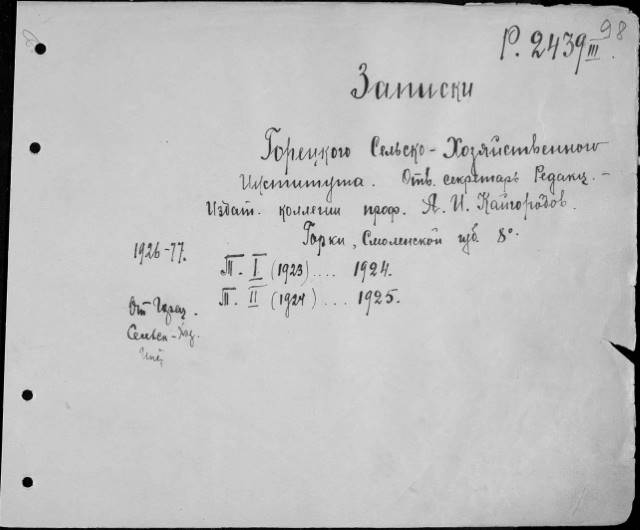 98
Р. 2439 III.
Записки
Горецкого Сельско-Хозяйственного
Института. Отв. секретарь Редакц.-
Издат. коллегии проф. А. И. Кайгородов.
Горки, Смоленской губ. 8°.
1926-77.
Т. I (1923).... 1924.
Т. II (1924) ... 1925.
От Горец.
Сельск-Хоз.
Инст.